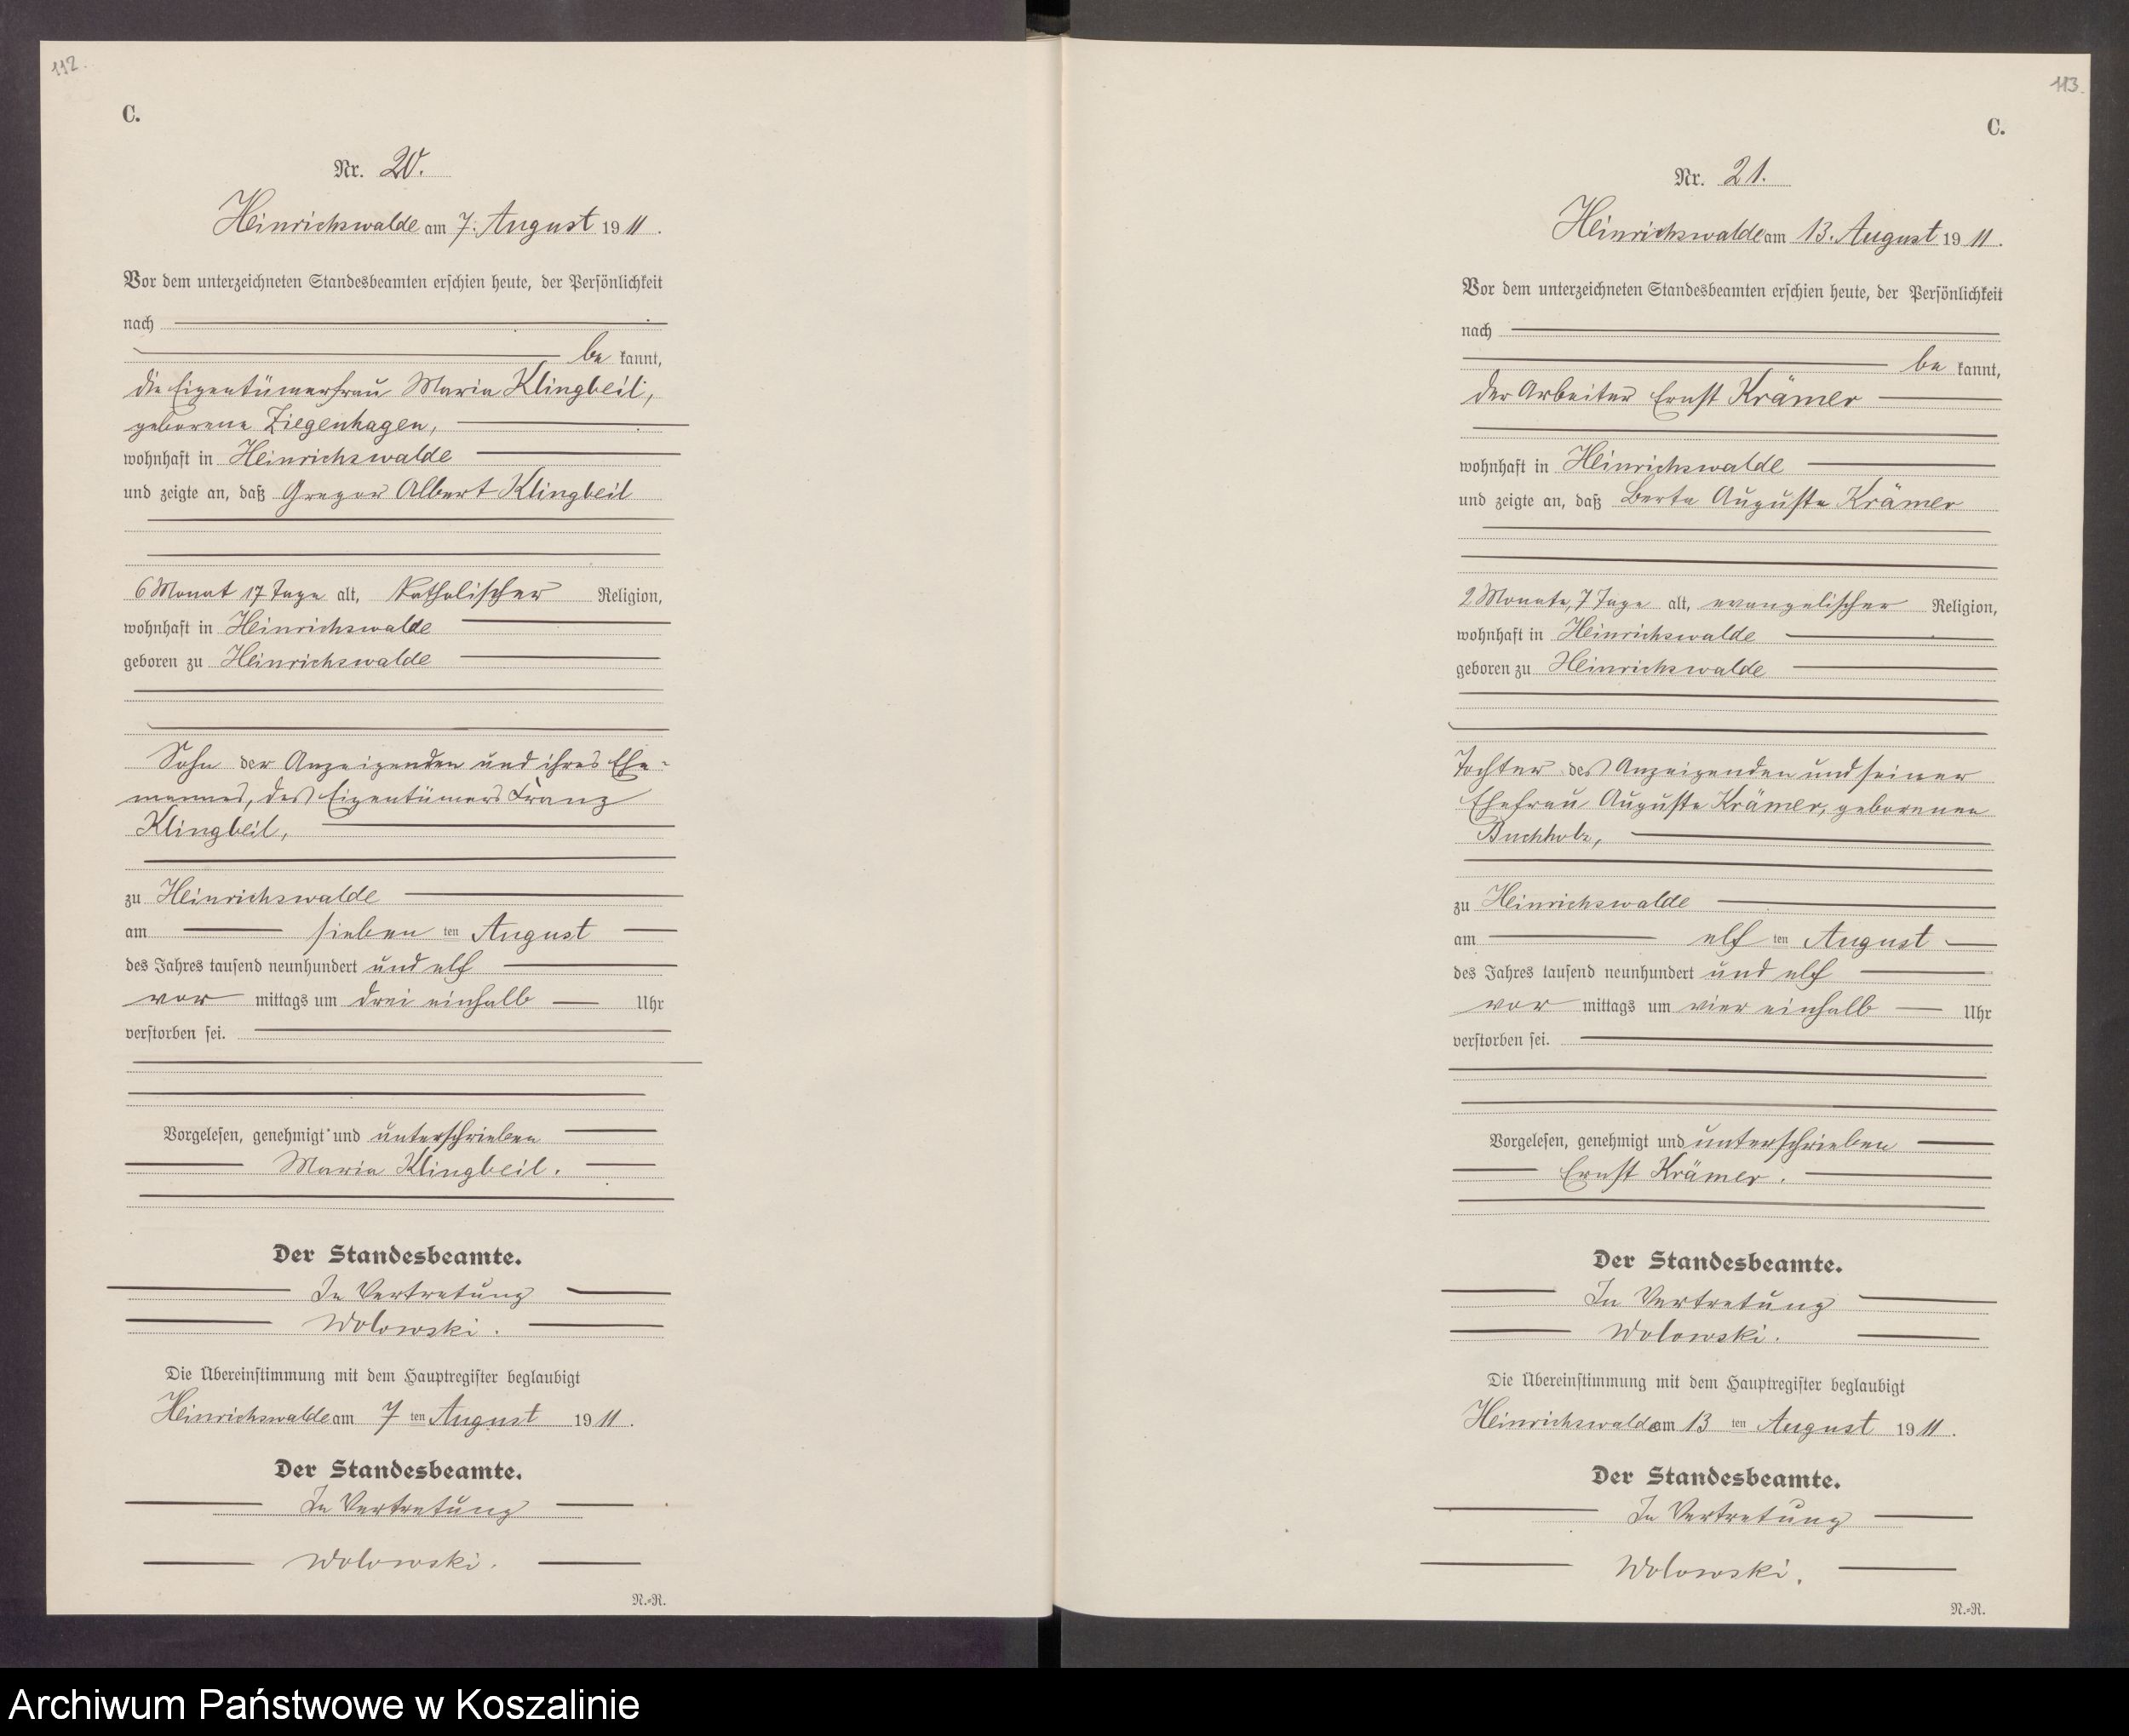 112.
C.
Nr. 20.
Heinrichswalde am 7. August 1911.
Vor dem unterzeichneten Standesbeamten erschien heute, der Persönlichkeit
nach
be kannt,
die Eigentümerfrau Maria Klingbeil,
geborene Ziegenhagen,
wohnhaft in Heinrichswalde
und zeigte an, daß Gregor Albert Klingbeil
6 Monat 17 Tage alt, katholischer Religion,
wohnhaft in Heinrichswalde
geboren zu Heinrichswalde
Sohn der Anzeigenden und ihres Ehe-
mannes, des Eigentümers Franz
Klingbeil,
zu Heinrichswalde
am sieben ten August
des Jahres tausend neunhundert und elf
vor mittags um drei einhalb Uhr
verstorben sei.
Vorgelesen, genehmigt und unterschrieben
Maria Klingbeil.
Der Standesbeamte.
In Vertretung
Wolowski.
Die Übereinstimmung mit dem Hauptregister beglaubigt
Heinrichswalde am 7 ten August 1911.
Der Standesbeamte.
In Vertretung
Wolowski.
N.-R.
113.
C.
Nr. 21.
Heinrichswalde am 13. August 1911.
Vor dem unterzeichneten Standesbeamten erschien heute, der Persönlichkeit
nach
be kannt,
der Arbeiter Ernst Krämer
wohnhaft in Heinrichswalde
und zeigte an, daß Berta Auguste Krämer
2 Monate, 7 Tage alt, evangelischer Religion,
wohnhaft in Heinrichswalde
geboren zu Heinrichswalde
Tochter des Anzeigenden und seiner
Ehefrau Auguste Krämer, geborenen
Buchholz,
zu Heinrichswalde
am elf ten August
des Jahres tausend neunhundert und elf
vor mittags um vier einhalb Uhr
verstorben sei.
Vorgelesen, genehmigt und unterschrieben
Ernst Krämer.
Der Standesbeamte.
In Vertretung
Wolowski.
Die Übereinstimmung mit dem Hauptregister beglaubigt
Heinrichswalde am 13 ten August 1911.
Der Standesbeamte.
In Vertretung
Wolowski.
N.-R.
Archiwum Państwowe w Koszalinie